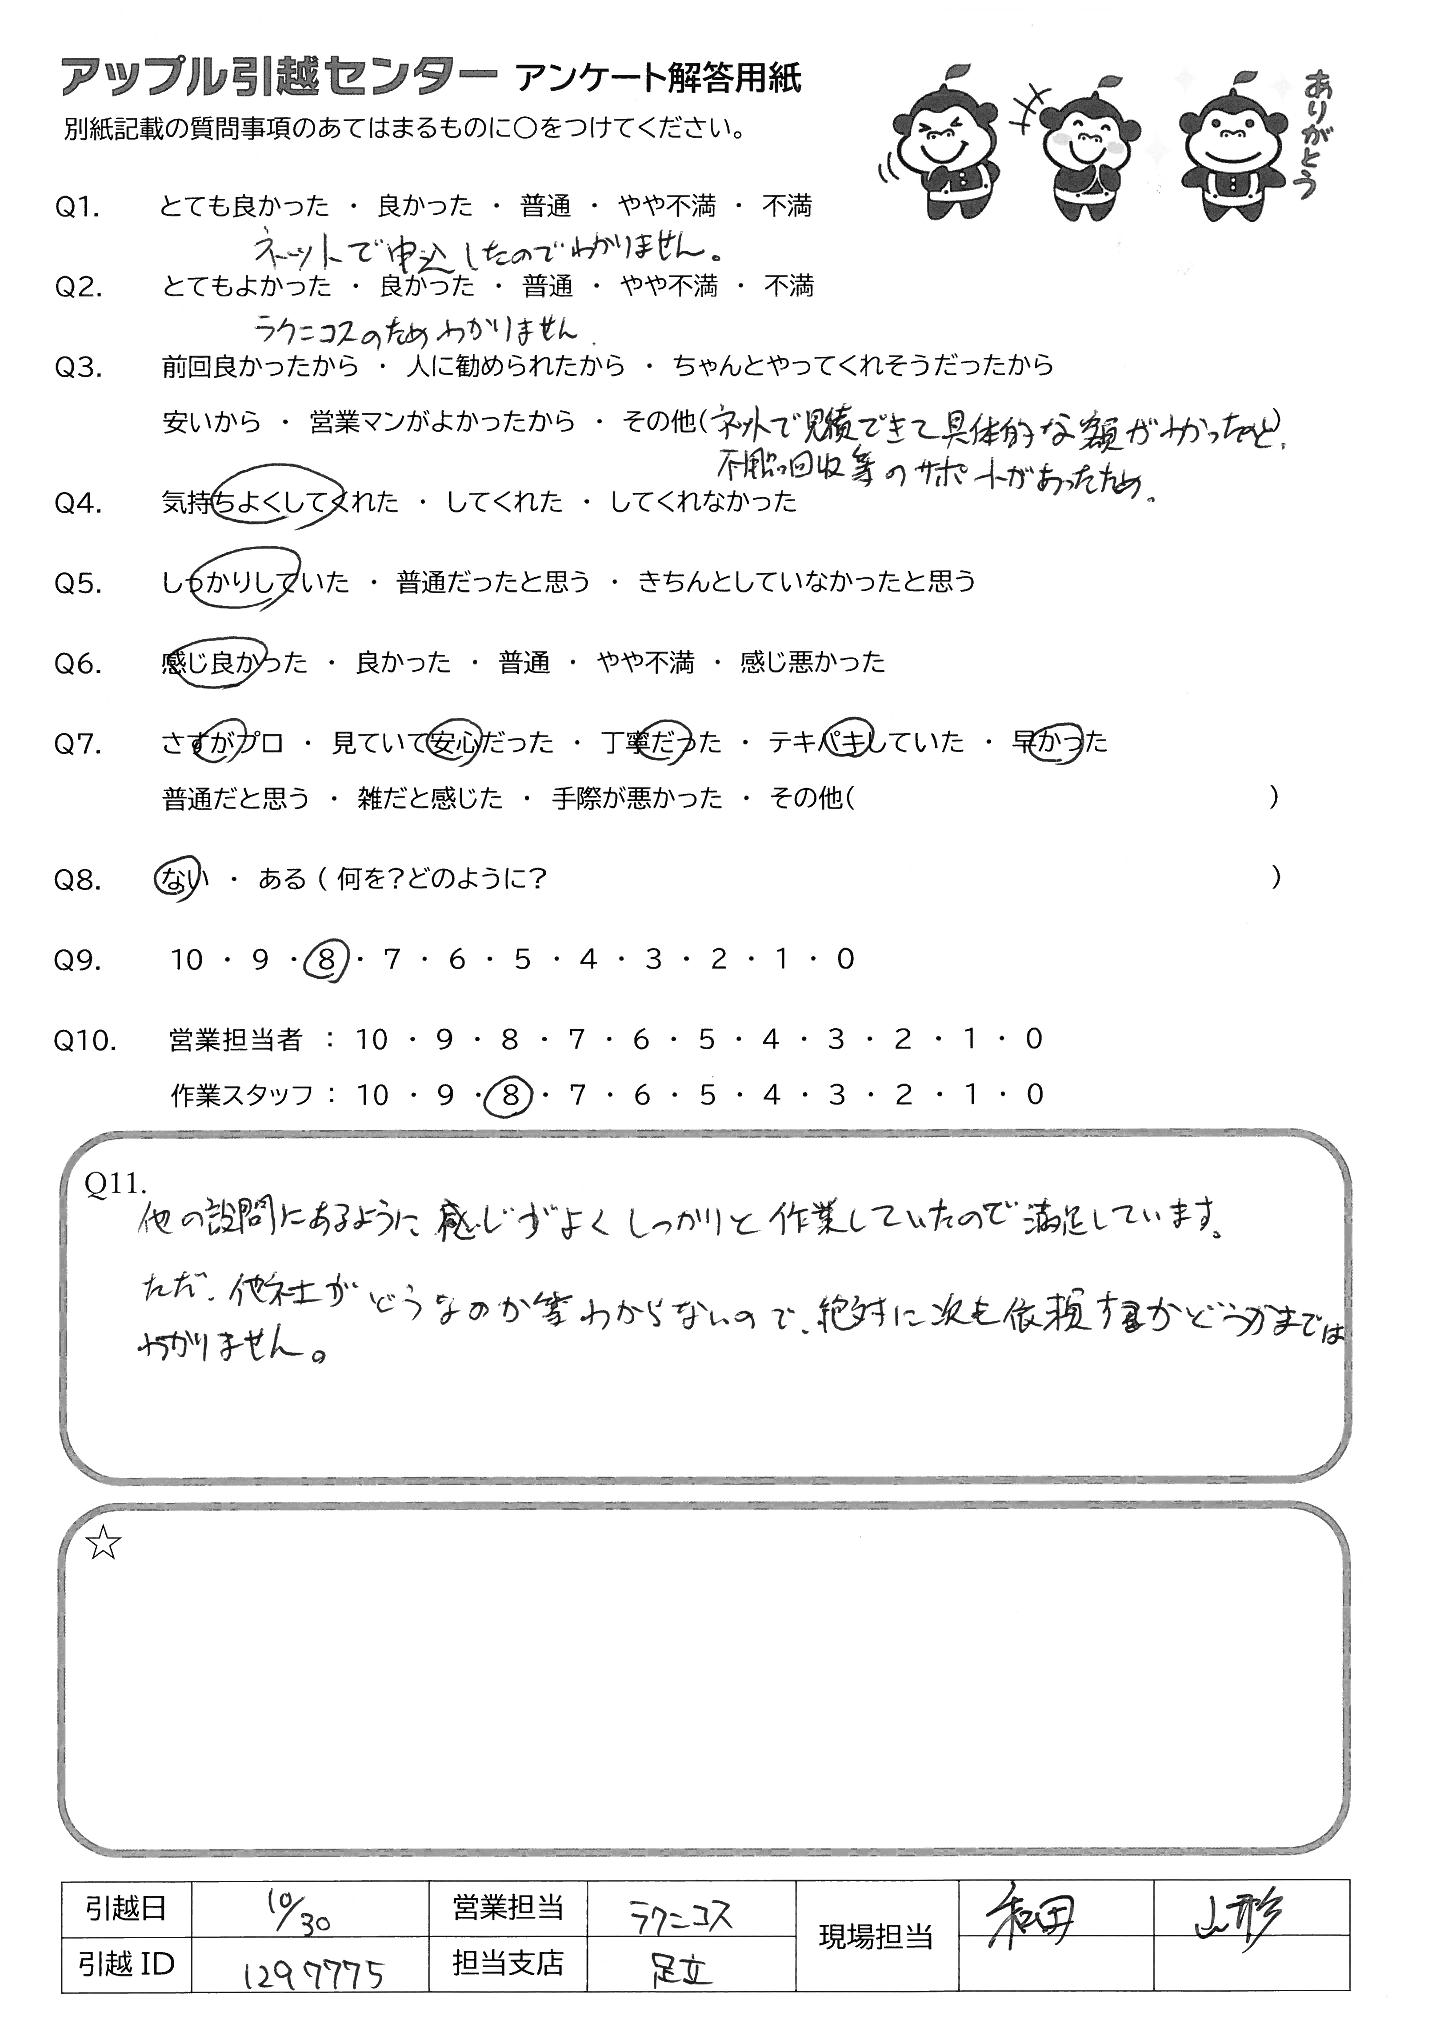 アップル引越センター アンケート解答用紙
別紙記載の質問事項のあてはまるものに○をつけてください。
ありがとう
Q1. とても良かった ・ 良かった ・ 普通 ・ やや不満 ・ 不満
ネットで申込したのでわかりません。
Q2. とてもよかった ・ 良かった ・ 普通 ・ やや不満 ・ 不満
ラクニコスのためわかりません.
Q3. 前回良かったから ・ 人に勧められたから ・ ちゃんとやってくれそうだったから
安いから ・ 営業マンがよかったから ・ その他(ネットで見積できて具体的な額がわかったのと、)
不用品回収等のサポートがあったため。
Q4. 気持ちよくしてくれた ・ してくれた ・ してくれなかった
Q5. しっかりしていた ・ 普通だったと思う ・ きちんとしていなかったと思う
Q6. 感じ良かった ・ 良かった ・ 普通 ・ やや不満 ・ 感じ悪かった
Q7. さすがプロ ・ 見ていて安心だった ・ 丁寧だった ・ テキパキしていた ・ 早かった
普通だと思う ・ 雑だと感じた ・ 手際が悪かった ・ その他( )
Q8. ない ・ ある ( 何を?どのように? )
Q9. 10 ・ 9 ・ 8 ・ 7 ・ 6 ・ 5 ・ 4 ・ 3 ・ 2 ・ 1 ・ 0
Q10. 営業担当者 : 10 ・ 9 ・ 8 ・ 7 ・ 6 ・ 5 ・ 4 ・ 3 ・ 2 ・ 1 ・ 0
作業スタッフ : 10 ・ 9 ・ 8 ・ 7 ・ 6 ・ 5 ・ 4 ・ 3 ・ 2 ・ 1 ・ 0
Q11.
他の設問にあるように感じがよくしっかりと作業していたので満足しています。
ただ、他社がどうなのか等わからないので、絶対に次も依頼するかどうかまでは
わかりません。
☆
引越日 10/30 営業担当 ラクニコス 現場担当 和田 山形
引越ID 1297775 担当支店 足立